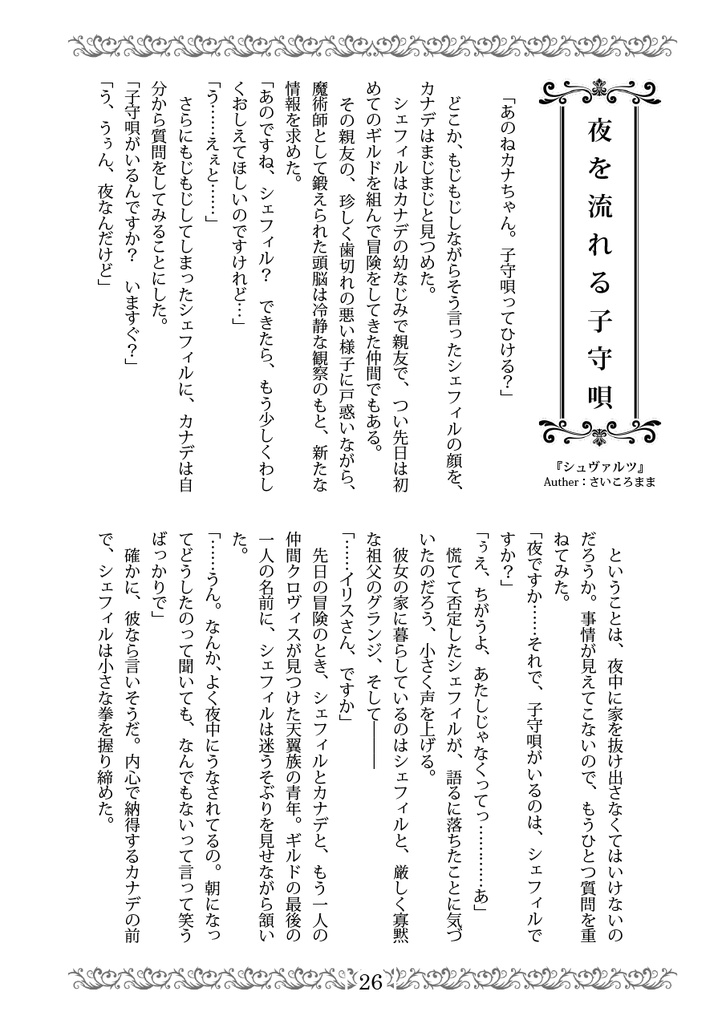 夜を流れる子守唄
『シュヴァルツ』
Auther：さいころまま
「あのねカナちゃん。子守唄ってひける？」
どこか、もじもじしながらそう言ったシェフィルの顔を、
カナデはまじまじと見つめた。
シェフィルはカナデの幼なじみで親友で、つい先日は初
めてのギルドを組んで冒険をしてきた仲間でもある。
その親友の、珍しく歯切れの悪い様子に戸惑いながら、
魔術師として鍛えられた頭脳は冷静な観察のもと、新たな
情報を求めた。
「あのですね、シェフィル？　できたら、もう少しくわし
くおしえてほしいのですけれど…」
「う……えぇと……」
さらにもじもじしてしまったシェフィルに、カナデは自
分から質問をしてみることにした。
「子守唄がいるんですか？　いますぐ？」
「う、うぅん、夜なんだけど」
ということは、夜中に家を抜け出さなくてはいけないの
だろうか。事情が見えてこないので、もうひとつ質問を重
ねてみた。
「夜ですか……それで、子守唄がいるのは、シェフィルで
すか？」
「ぅえ、ちがうよ、あたしじゃなくってっ…………あ」
慌てて否定したシェフィルが、語るに落ちたことに気づ
いたのだろう、小さく声を上げる。
彼女の家に暮らしているのはシェフィルと、厳しく寡黙
な祖父のグランジ、そして――
「……イリスさん、ですか」
先日の冒険のとき、シェフィルとカナデと、もう一人の
仲間クロヴィスが見つけた天翼族の青年。ギルドの最後の
一人の名前に、シェフィルは迷うそぶりを見せながら頷い
た。
「……うん。なんか、よく夜中にうなされてるの。朝になっ
てどうしたのって聞いても、なんでもないって言って笑う
ばっかりで」
確かに、彼なら言いそうだ。内心で納得するカナデの前
で、シェフィルは小さな拳を握り締めた。
26